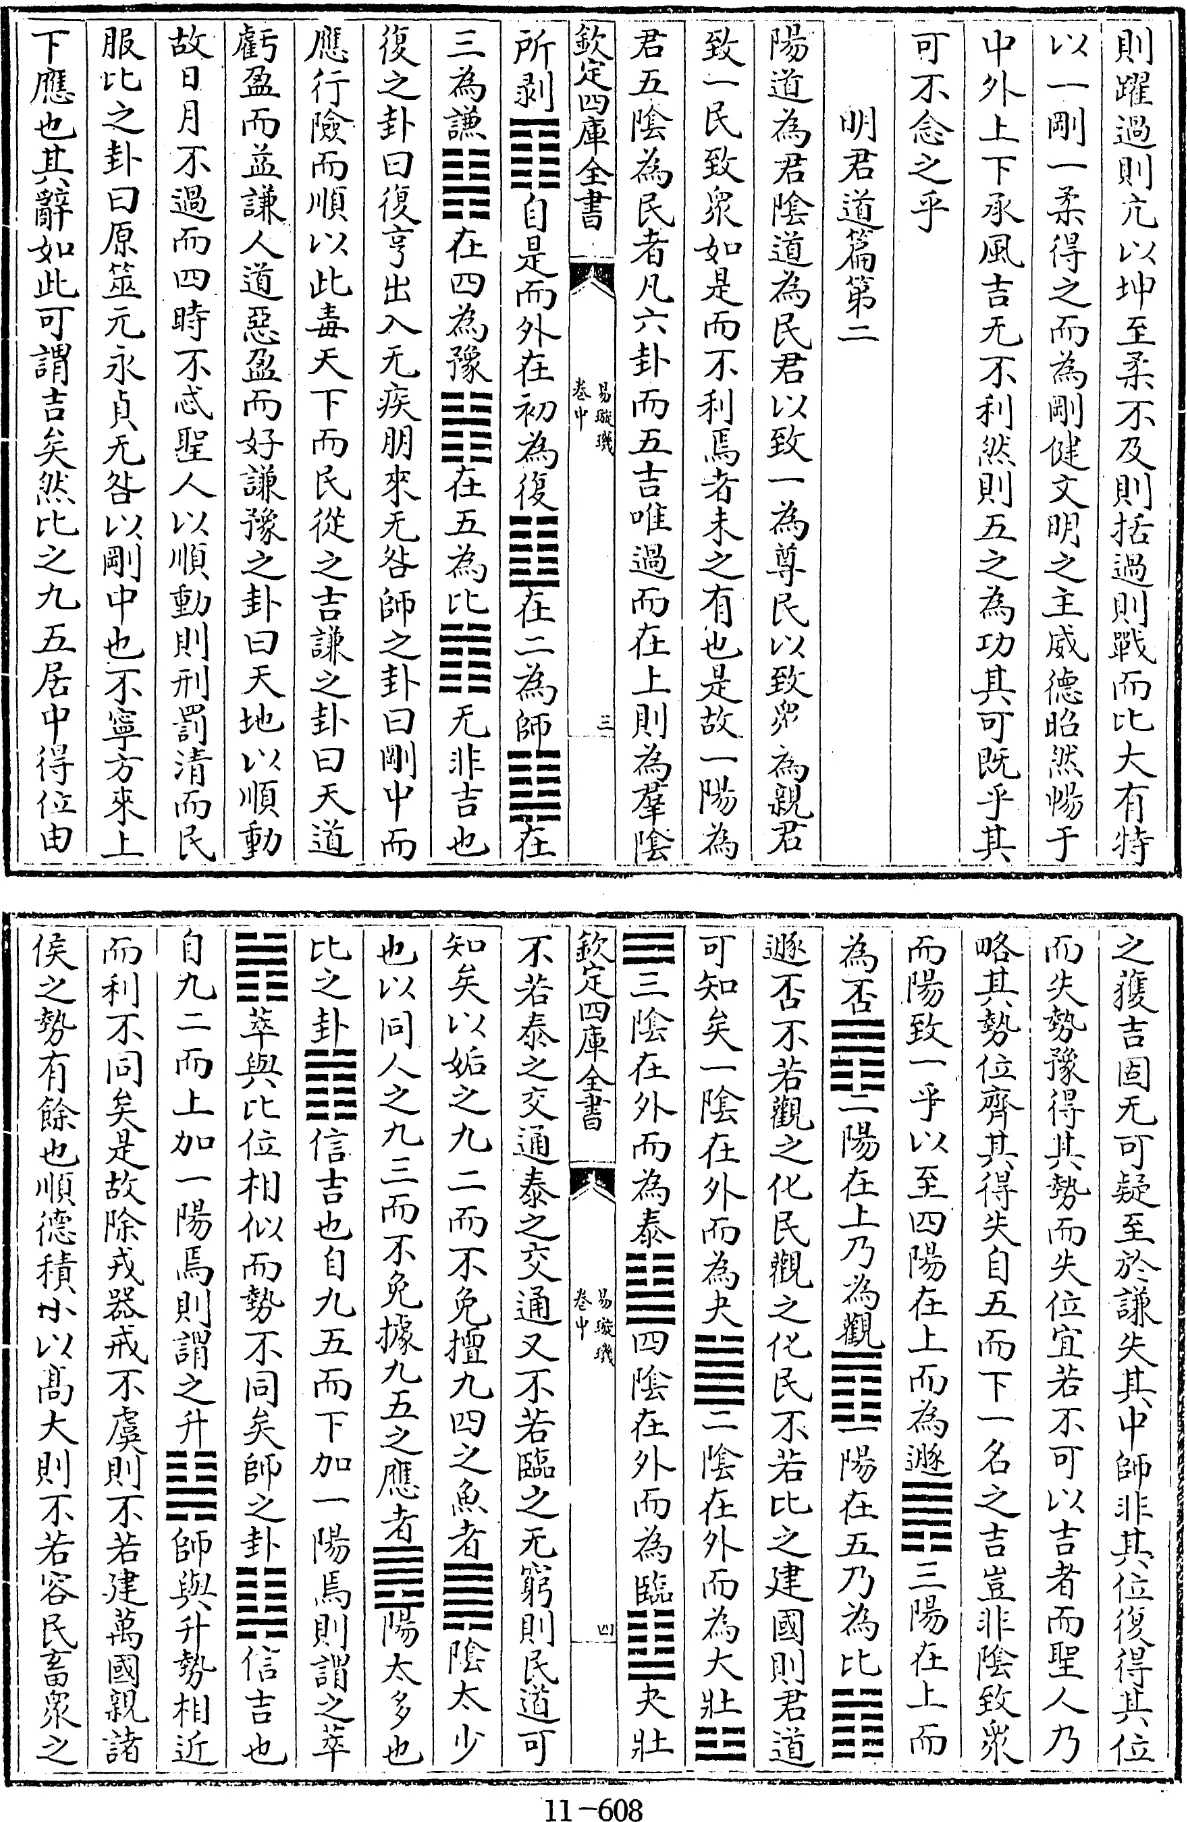 則躍過則亢以坤至柔不及則括過則戰而比大有特
以一剛一柔得之而為剛健文明之主威德昭然暢于
中外上下承風吉无不利然則五之為功其可既乎其
可不念之乎
明君道篇第二
陽道為君陰道為民君以致一為尊民以致眾為親君
致一民致眾如是而不利焉者未之有也是故一陽為
君五陰為民者凡六卦而五吉唯過而在上則為羣陰
欽定四庫全書
易璇璣
卷中
三
所剥䷖自是而外在初為復䷗在二為師䷆在
三為謙䷎在四為豫䷏在五為比䷇无非吉也
復之卦曰復亨出入无疾朋來无咎師之卦曰剛中而
應行險而順以此毒天下而民從之吉謙之卦曰天道
虧盈而益謙人道惡盈而好謙豫之卦曰天地以順動
故日月不過而四時不忒聖人以順動則刑罰清而民
服比之卦曰原筮元永貞无咎以剛中也不寧方來上
下應也其辭如此可謂吉矣然比之九五居中得位由
之獲吉固无可疑至於謙失其中師非其位復得其位
而失勢豫得其勢而失位宜若不可以吉者而聖人乃
略其勢位齊其得失自五而下一名之吉豈非陰致眾
而陽致一乎以至四陽在上而為遯䷠三陽在上而
為否䷋二陽在上乃為觀䷓一陽在五乃為比䷇
遯否不若觀之化民觀之化民不若比之建國則君道
可知矣一陰在外而為夬䷪二陰在外而為大壯䷡
三陰在外而為泰䷊四陰在外而為臨䷒夬壯
欽定四庫全書
易璇璣
卷中
四
不若泰之交通泰之交通又不若臨之无窮則民道可
知矣以姤之九二而不免擅九四之魚者䷫陰太少
也以同人之九三而不免據九五之應者䷌陽太多也
比之卦䷇信吉也自九五而下加一陽焉則謂之萃
䷬萃與比位相似而勢不同矣師之卦䷆信吉也
自九二而上加一陽焉則謂之升䷭師與升勢相近
而利不同矣是故除戎器戒不虞則不若建萬國親諸
侯之勢有餘也順德積小以髙大則不若容民畜眾之
11-608